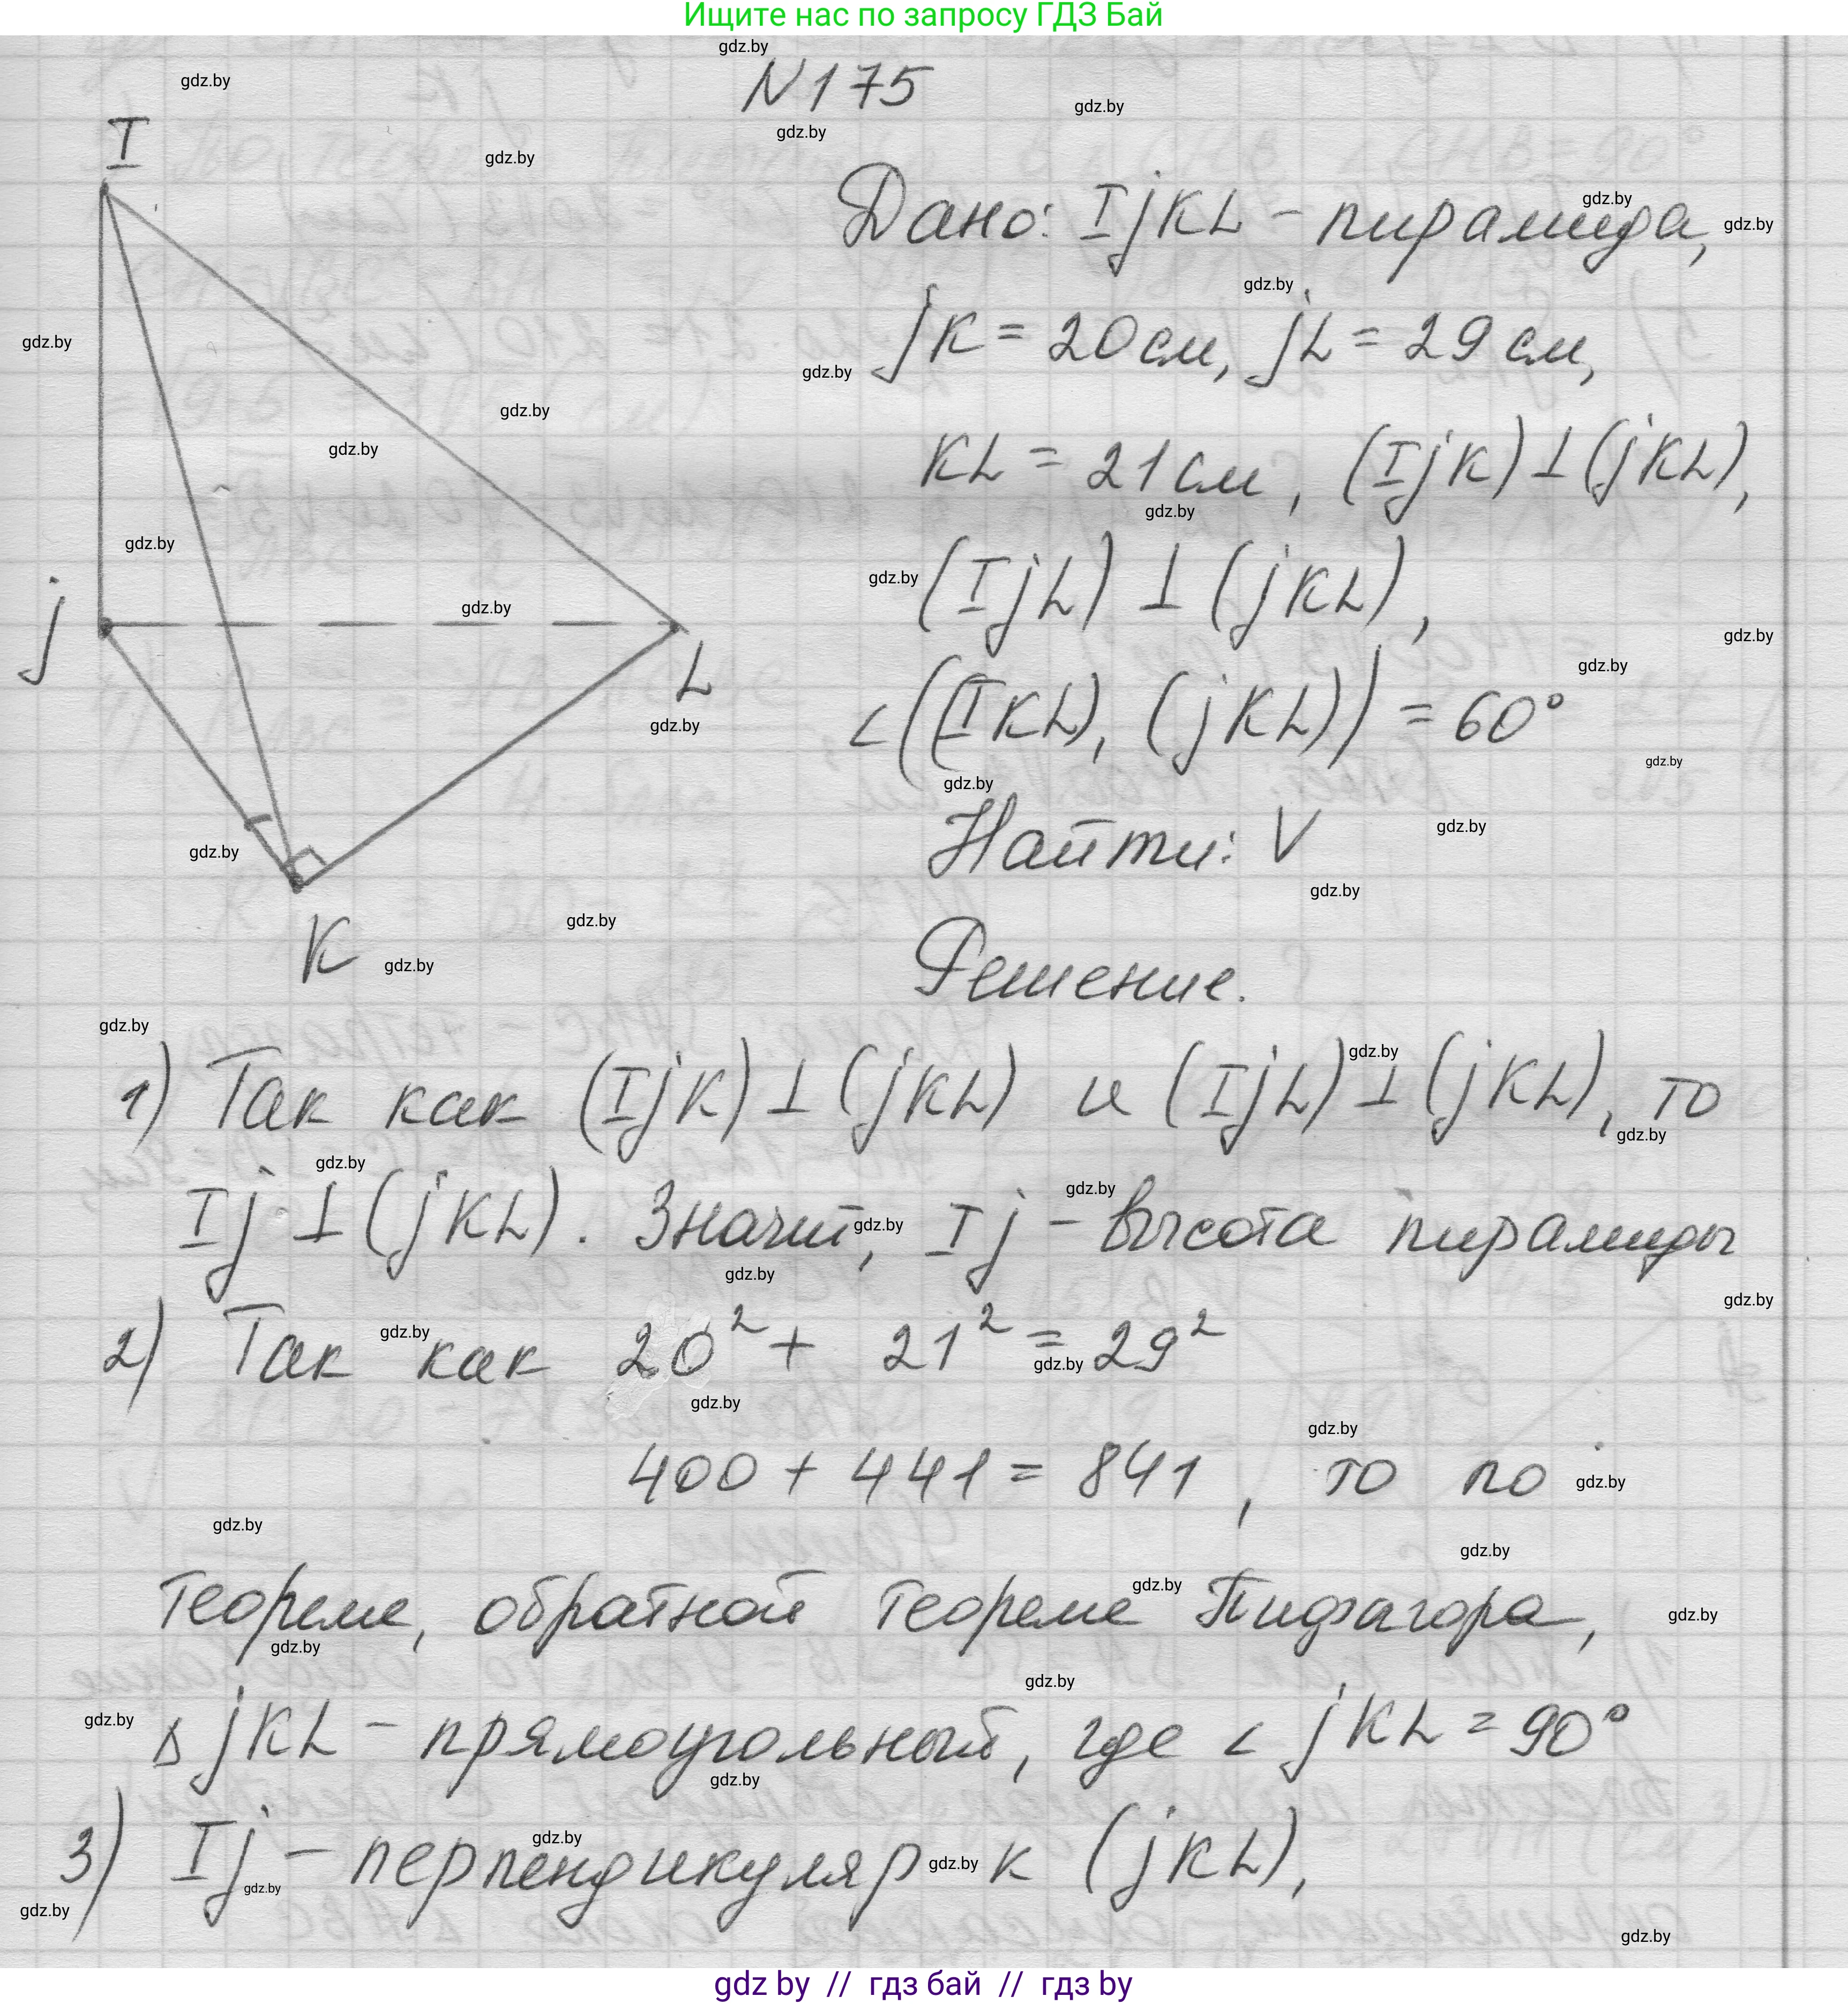 Ищите нас по запросу ГДЗ Бай
N175
I
j
L
K
Дано: IjKL - пирамида,
jK = 20 см, jL = 29 см,
KL = 21 см, (IjK) ⊥ (jKL),
(IjL) ⊥ (jKL),
∠((IKL), (jKL)) = 60°
Найти: V
Решение.
1) Так как (IjK) ⊥ (jKL) и (IjL) ⊥ (jKL), то
Ij ⊥ (jKL). Значит, Ij - высота пирамиды
2) Так как 20² + 21² = 29²
400 + 441 = 841, то по
теореме, обратной теореме Пифагора,
Δ jKL - прямоугольный, где ∠ jKL = 90°
3) Ij - перпендикуляр к (jKL),
gdz by // гдз бай // гдз by